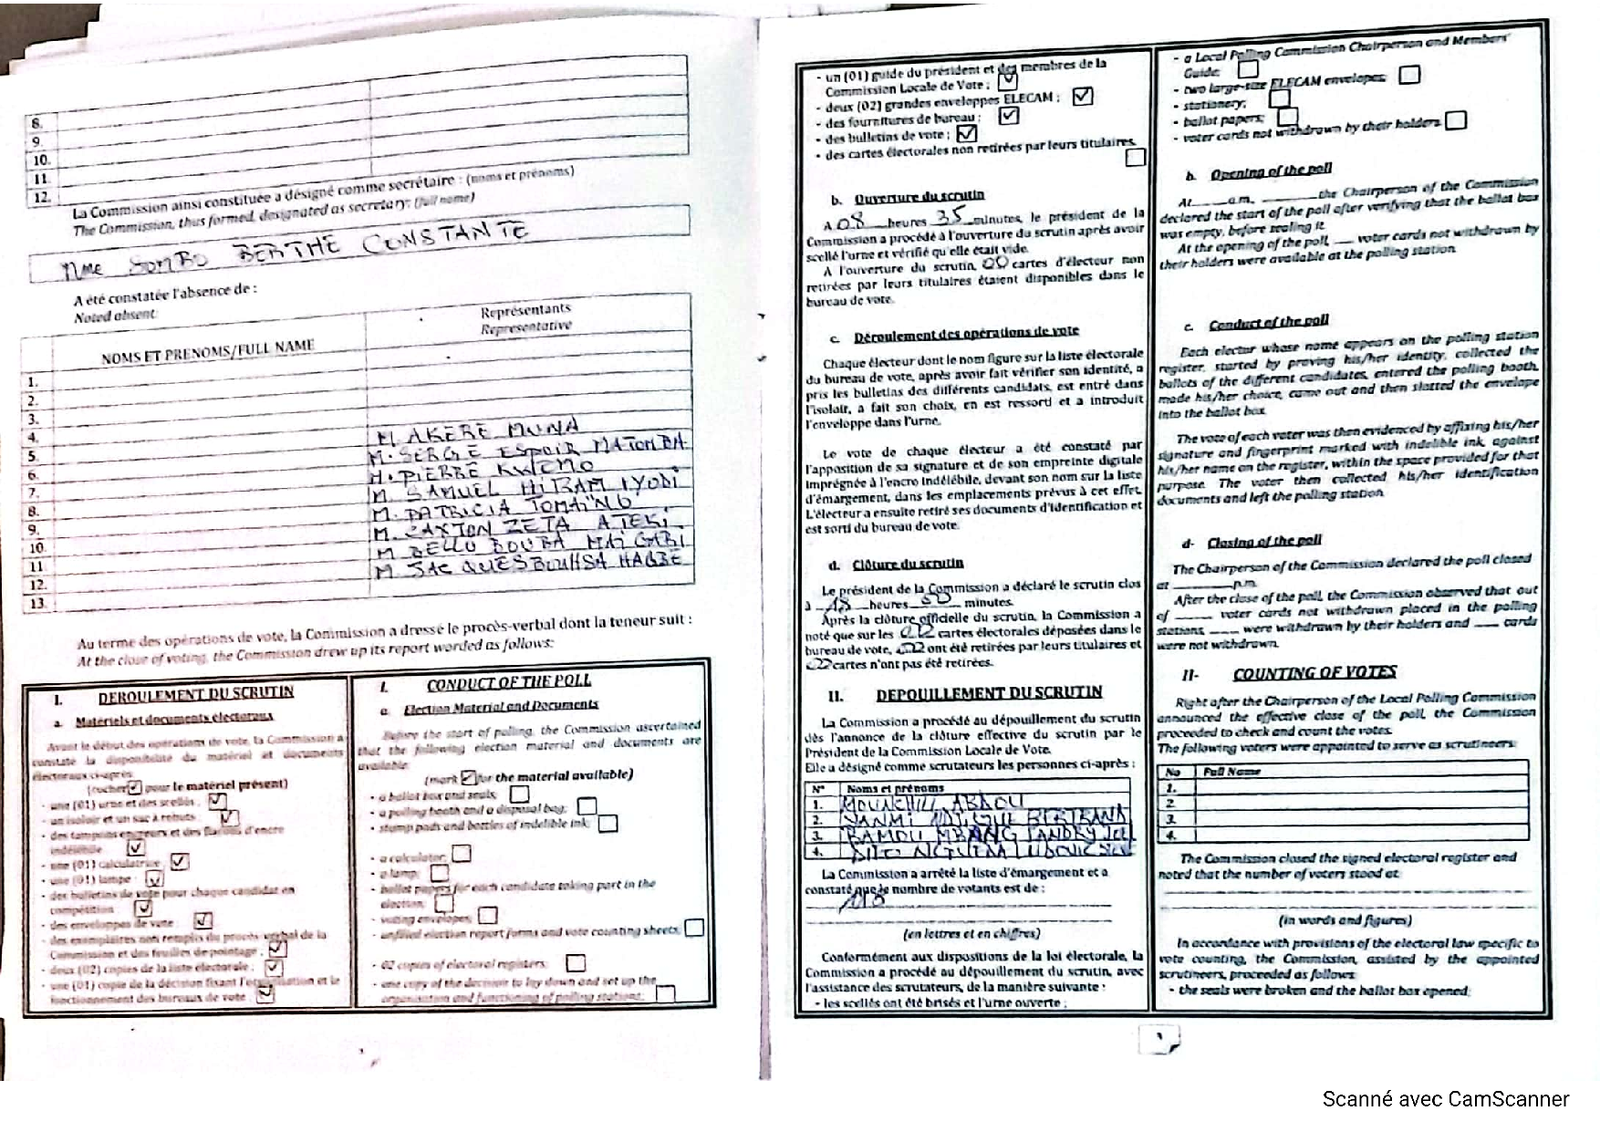 8.
9.
10.
11.
12.
La Commission ainsi constituée a désigné comme secrétaire : (noms et prénoms)
The Commission, thus formed, designated as secretary: (full name)
Mme SOMBO BERTHE CONSTANTE
A été constatée l'absence de :
Noted absent:
NOMS ET PRENOMS/FULL NAME
Représentants
Representative
1.
2.
3.
4. M. AKERE MUNA
5. M. SERGE ESPOIR MATOMBA
6. M. PIERRE KWEMO
7. M. SAMUEL HIRAM IYODI
8. M. PATRICIA TOMAÏNO
9. M. CAXTON ZETA ATEKI
10. M BELLO BOUBA MAIGARI
11. M JACQUES BOUHSA HAGBE
12.
13.
Au terme des opérations de vote, la Commission a dressé le procès-verbal dont la teneur suit :
At the close of voting, the Commission drew up its report worded as follows:
I. DEROULEMENT DU SCRUTIN
a. Matériels et documents électoraux
Avant le début des opérations de vote, la Commission a
constaté la disponibilité du matériel et documents
électoraux ci-après
(cocher ✓ pour le matériel présent)
- une (01) urne et des scellés : ✓
- un isoloir et un sac à rebuts : ✓
- des tampons encreurs et des flacons d'encre
indélébile ✓
- une (01) calculatrice : ✓
- une (01) lampe : ✓
- des bulletins de vote pour chaque candidat en
compétition ✓
- des enveloppes de vote : ✓
- des exemplaires non remplis du procès-verbal de la
Commission et des feuilles de pointage : ✓
- deux (02) copies de la liste électorale : ✓
- une (01) copie de la décision fixant l'organisation et le
fonctionnement des bureaux de vote : ✓
I. CONDUCT OF THE POLL
a. Election Material and Documents
Before the start of polling, the Commission ascertained
that the following election material and documents are
available:
(mark ✓ for the material available)
- a ballot box and seals;
- a polling booth and a disposal bag;
- stamp pads and bottles of indelible ink;
- a calculator;
- a lamp;
- ballot papers for each candidate taking part in the
election;
- voting envelopes;
- unfilled election report forms and vote counting sheets;
- 02 copies of electoral registers;
- one copy of the decision to lay down and set up the
organisation and functioning of polling stations;
- un (01) guide du président et des membres de la
Commission Locale de Vote : ✓
- deux (02) grandes enveloppes ELECAM : ✓
- des fournitures de bureau : ✓
- des bulletins de vote : ✓
- des cartes électorales non retirées par leurs titulaires.
b. Ouverture du scrutin
A 08 heures 35 minutes, le président de la
Commission a procédé à l'ouverture du scrutin après avoir
scellé l'urne et vérifié qu'elle était vide.
A l'ouverture du scrutin, 00 cartes d'électeur non
retirées par leurs titulaires étaient disponibles dans le
bureau de vote.
c. Déroulement des opérations de vote
Chaque électeur dont le nom figure sur la liste électorale
du bureau de vote, après avoir fait vérifier son identité, a
pris les bulletins des différents candidats, est entré dans
l'isoloir, a fait son choix, en est ressorti et a introduit
l'enveloppe dans l'urne.
Le vote de chaque électeur a été constaté par
l'apposition de sa signature et de son empreinte digitale
imprégnée à l'encre indélébile, devant son nom sur la liste
d'émargement, dans les emplacements prévus à cet effet.
L'électeur a ensuite retiré ses documents d'identification et
est sorti du bureau de vote.
d. Clôture du scrutin
Le président de la Commission a déclaré le scrutin clos
à 18 heures minutes.
Après la clôture officielle du scrutin, la Commission a
noté que sur les cartes électorales déposées dans le
bureau de vote, ont été retirées par leurs titulaires et
cartes n'ont pas été retirées.
II. DEPOUILLEMENT DU SCRUTIN
La Commission a procédé au dépouillement du scrutin
dès l'annonce de la clôture effective du scrutin par le
Président de la Commission Locale de Vote.
Elle a désigné comme scrutateurs les personnes ci-après :
N° Noms et prénoms
1.
2. BERTRAND
3. LANDRY
4. LUDOVIC
La Commission a arrêté la liste d'émargement et a
constaté que le nombre de votants est de :
118
(en lettres et en chiffres)
Conformément aux dispositions de la loi électorale, la
Commission a procédé au dépouillement du scrutin, avec
l'assistance des scrutateurs, de la manière suivante :
- les scellés ont été brisés et l'urne ouverte ;
- a Local Polling Commission Chairperson and Members'
Guide;
- two large-size ELECAM envelopes;
- stationery;
- ballot papers;
- voter cards not withdrawn by their holders
b. Opening of the poll
At a.m, the Chairperson of the Commission
declared the start of the poll after verifying that the ballot box
was empty, before sealing it.
At the opening of the poll, voter cards not withdrawn by
their holders were available at the polling station.
c. Conduct of the poll
Each elector whose name appears on the polling station
register, started by proving his/her identity, collected the
ballots of the different candidates, entered the polling booth,
made his/her choice, came out and then slotted the envelope
into the ballot box.
The vote of each voter was then evidenced by affixing his/her
signature and fingerprint marked with indelible ink, against
his/her name on the register, within the space provided for that
purpose. The voter then collected his/her identification
documents and left the polling station.
d- Closing of the poll
The Chairperson of the Commission declared the poll closed
at p.m.
After the close of the poll, the Commission observed that out
of voter cards not withdrawn placed in the polling
stations, were withdrawn by their holders and cards
were not withdrawn.
II- COUNTING OF VOTES
Right after the Chairperson of the Local Polling Commission
announced the effective close of the poll, the Commission
proceeded to check and count the votes.
The following voters were appointed to serve as scrutineers:
No Full Name
1.
2.
3.
4.
The Commission closed the signed electoral register and
noted that the number of voters stood at:
(in words and figures)
In accordance with provisions of the electoral law specific to
vote counting, the Commission, assisted by the appointed
scrutineers, proceeded as follows:
- the seals were broken and the ballot box opened;
Scanné avec CamScanner